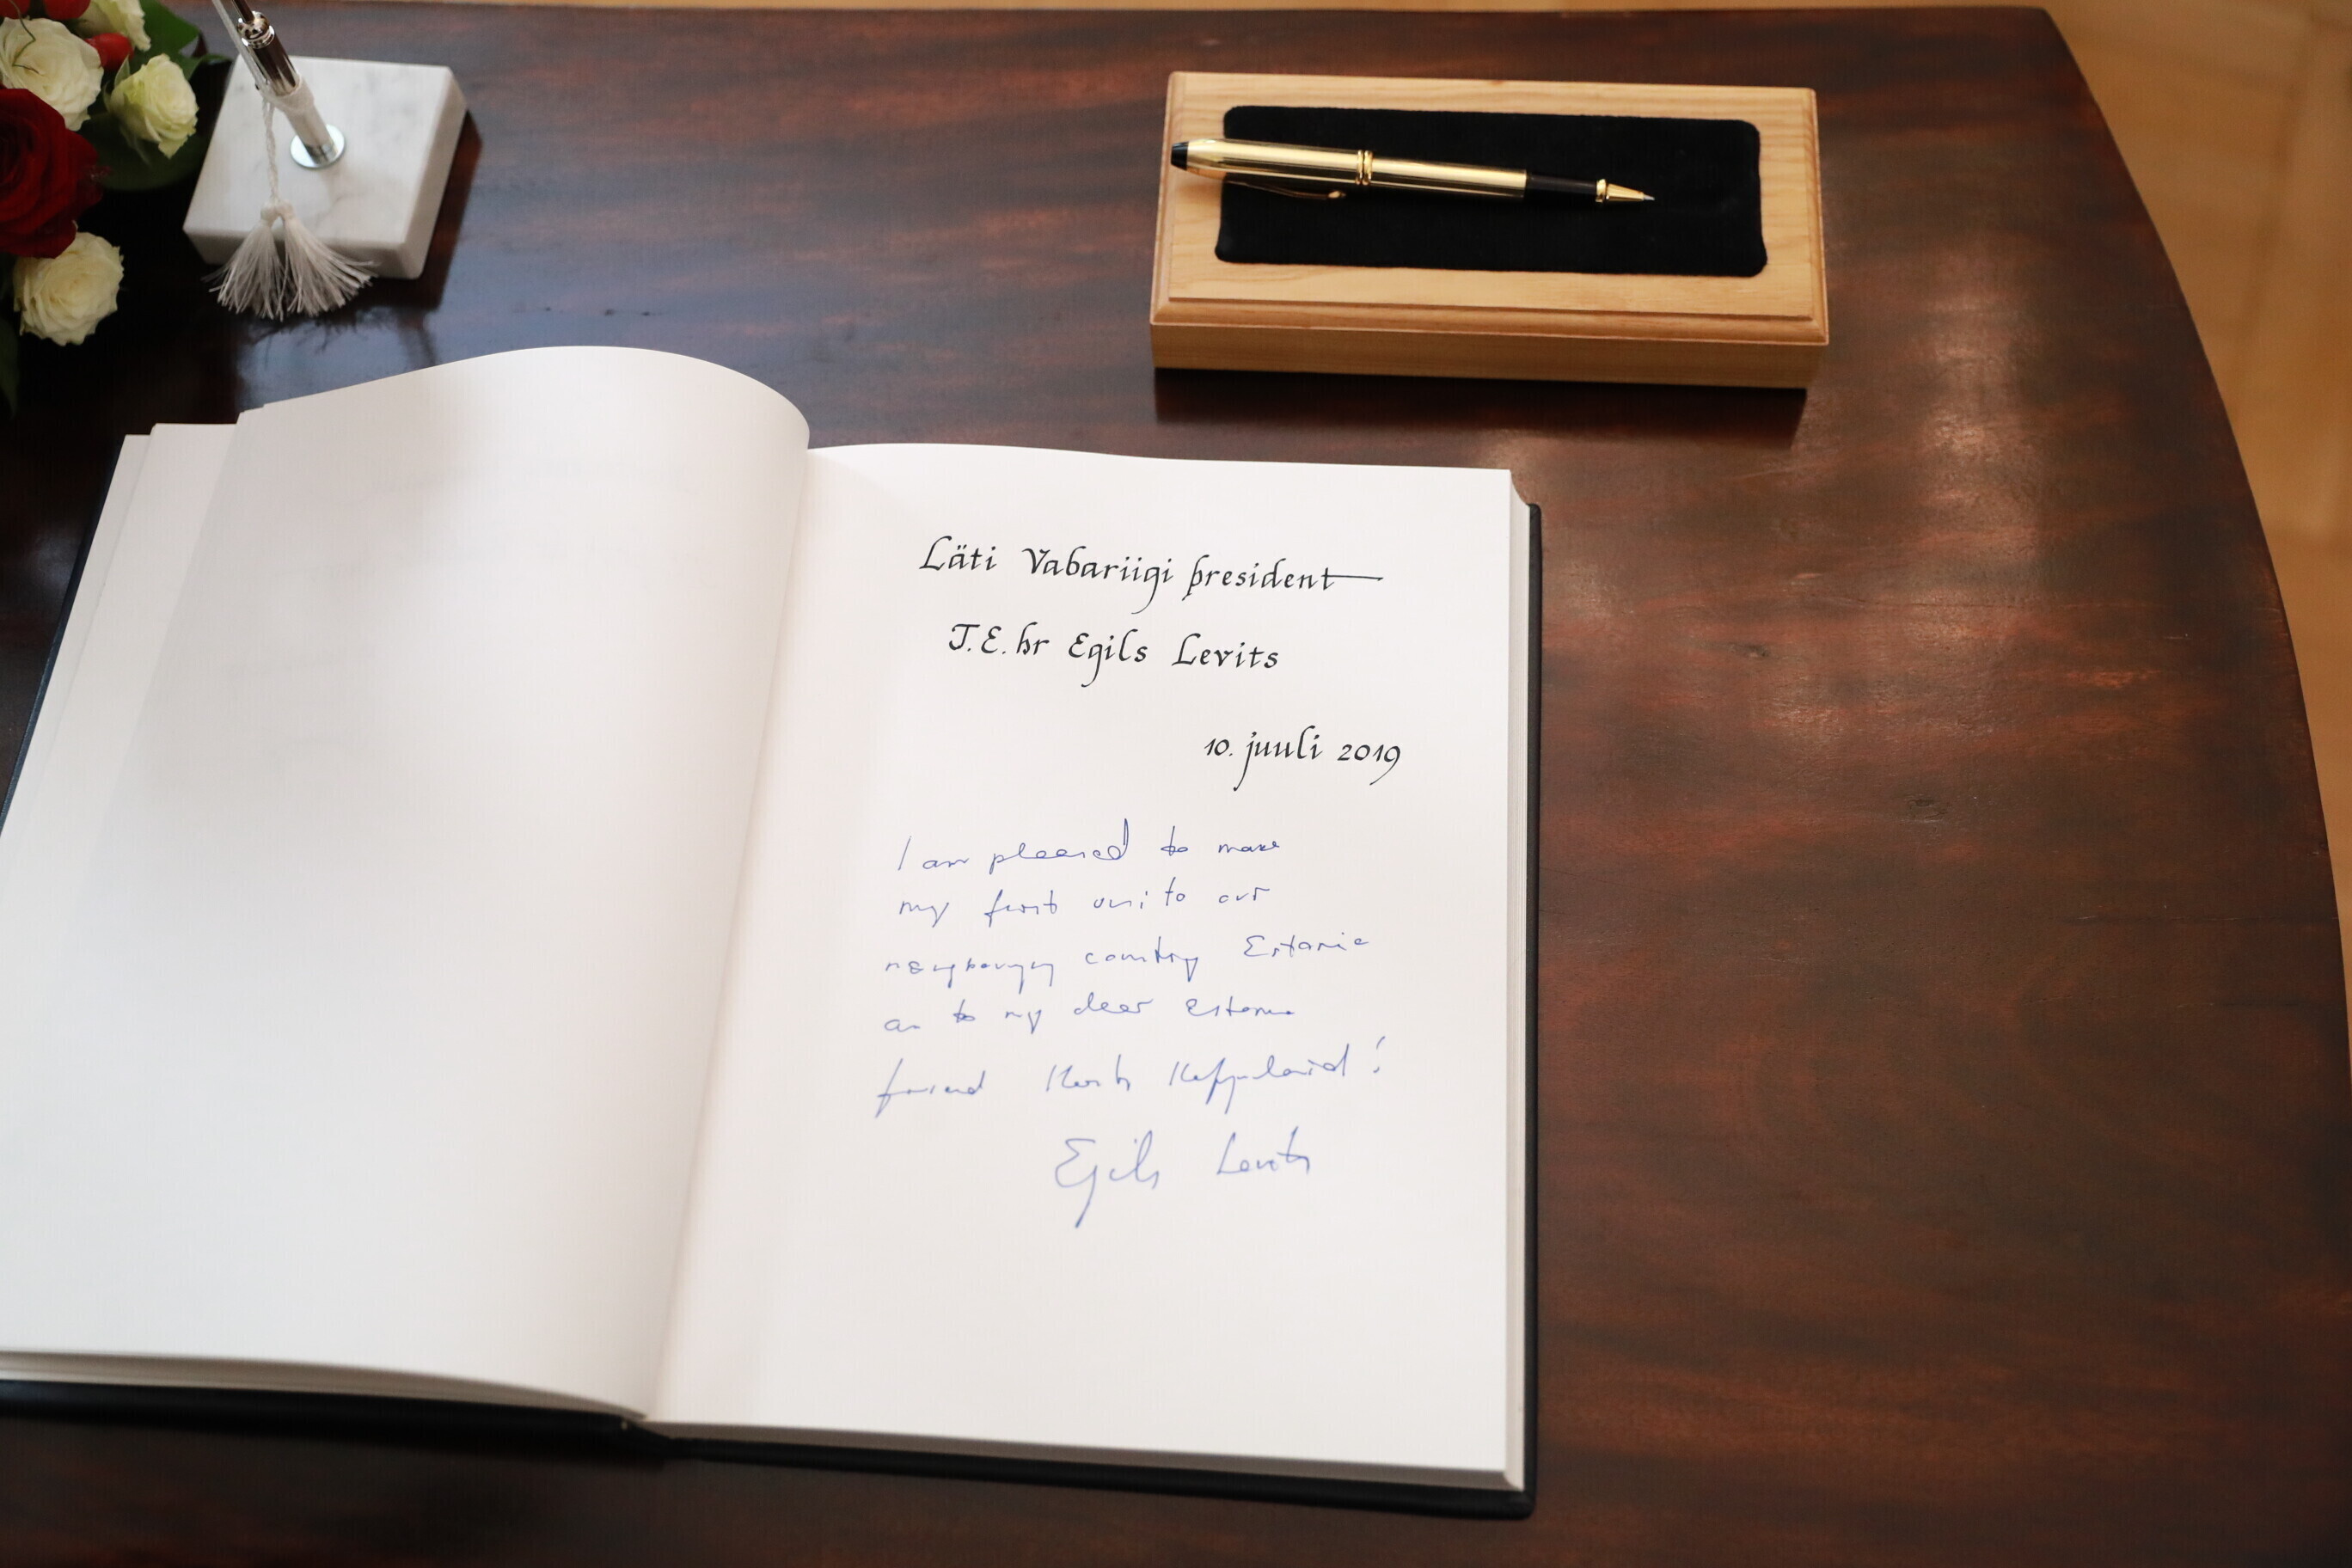 Läti Vabariigi president
T.E. hr Egils Levits
10. juuli 2019
I am pleased to make
my first to our
country Estonia
to my dear
friend Kersti Kaljulaid!
Egils Levits